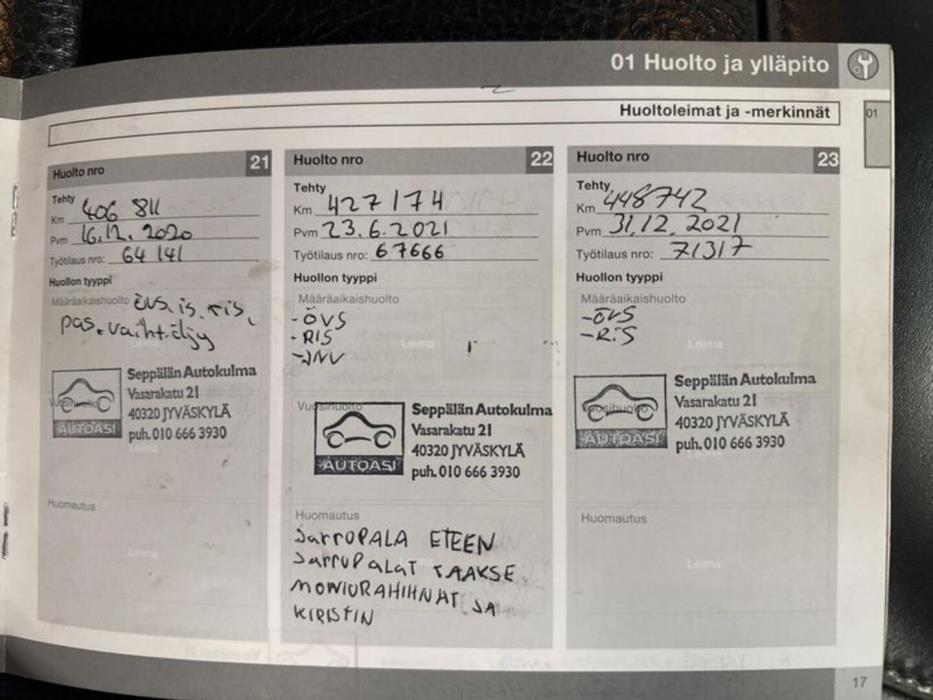 01 Huolto ja ylläpito
Huoltoleimat ja -merkinnät
01
Huolto nro 21
Tehty
Km 406 811
Pvm 16.12. 2020
Työtilaus nro: 64 141
Huollon tyyppi
Määräaikaishuolto ÖVS, is, ris,
pas. vaiht. öljy
Leima
Seppälän Autokulma
Vasarakatu 21
40320 JYVÄSKYLÄ
puh. 010 666 3930
Vuosihuolto
AUTOASI
Leima
Huomautus
Leima
Huolto nro 22
Tehty
Km 427174
Pvm 23.6.2021
Työtilaus nro: 67666
Huollon tyyppi
Määräaikaishuolto
-ÖVS
-RIS
Leima
Vuosihuolto
Seppälän Autokulma
Vasarakatu 21
40320 JYVÄSKYLÄ
puh. 010 666 3930
AUTOASI
Huomautus
JarruPALA ETEEN
JarruPALAT TAAKSE
MONIURAHIHNAT JA
KIRISTIN
Huolto nro 23
Tehty
Km 448742
Pvm 31.12.2021
Työtilaus nro: 71317
Huollon tyyppi
Määräaikaishuolto
-ÖVS
-RiS
Leima
Seppälän Autokulma
Vasarakatu 21
40320 JYVÄSKYLÄ
puh. 010 666 3930
Vuosihuolto
AUTOASI
Leima
Huomautus
Leima
17